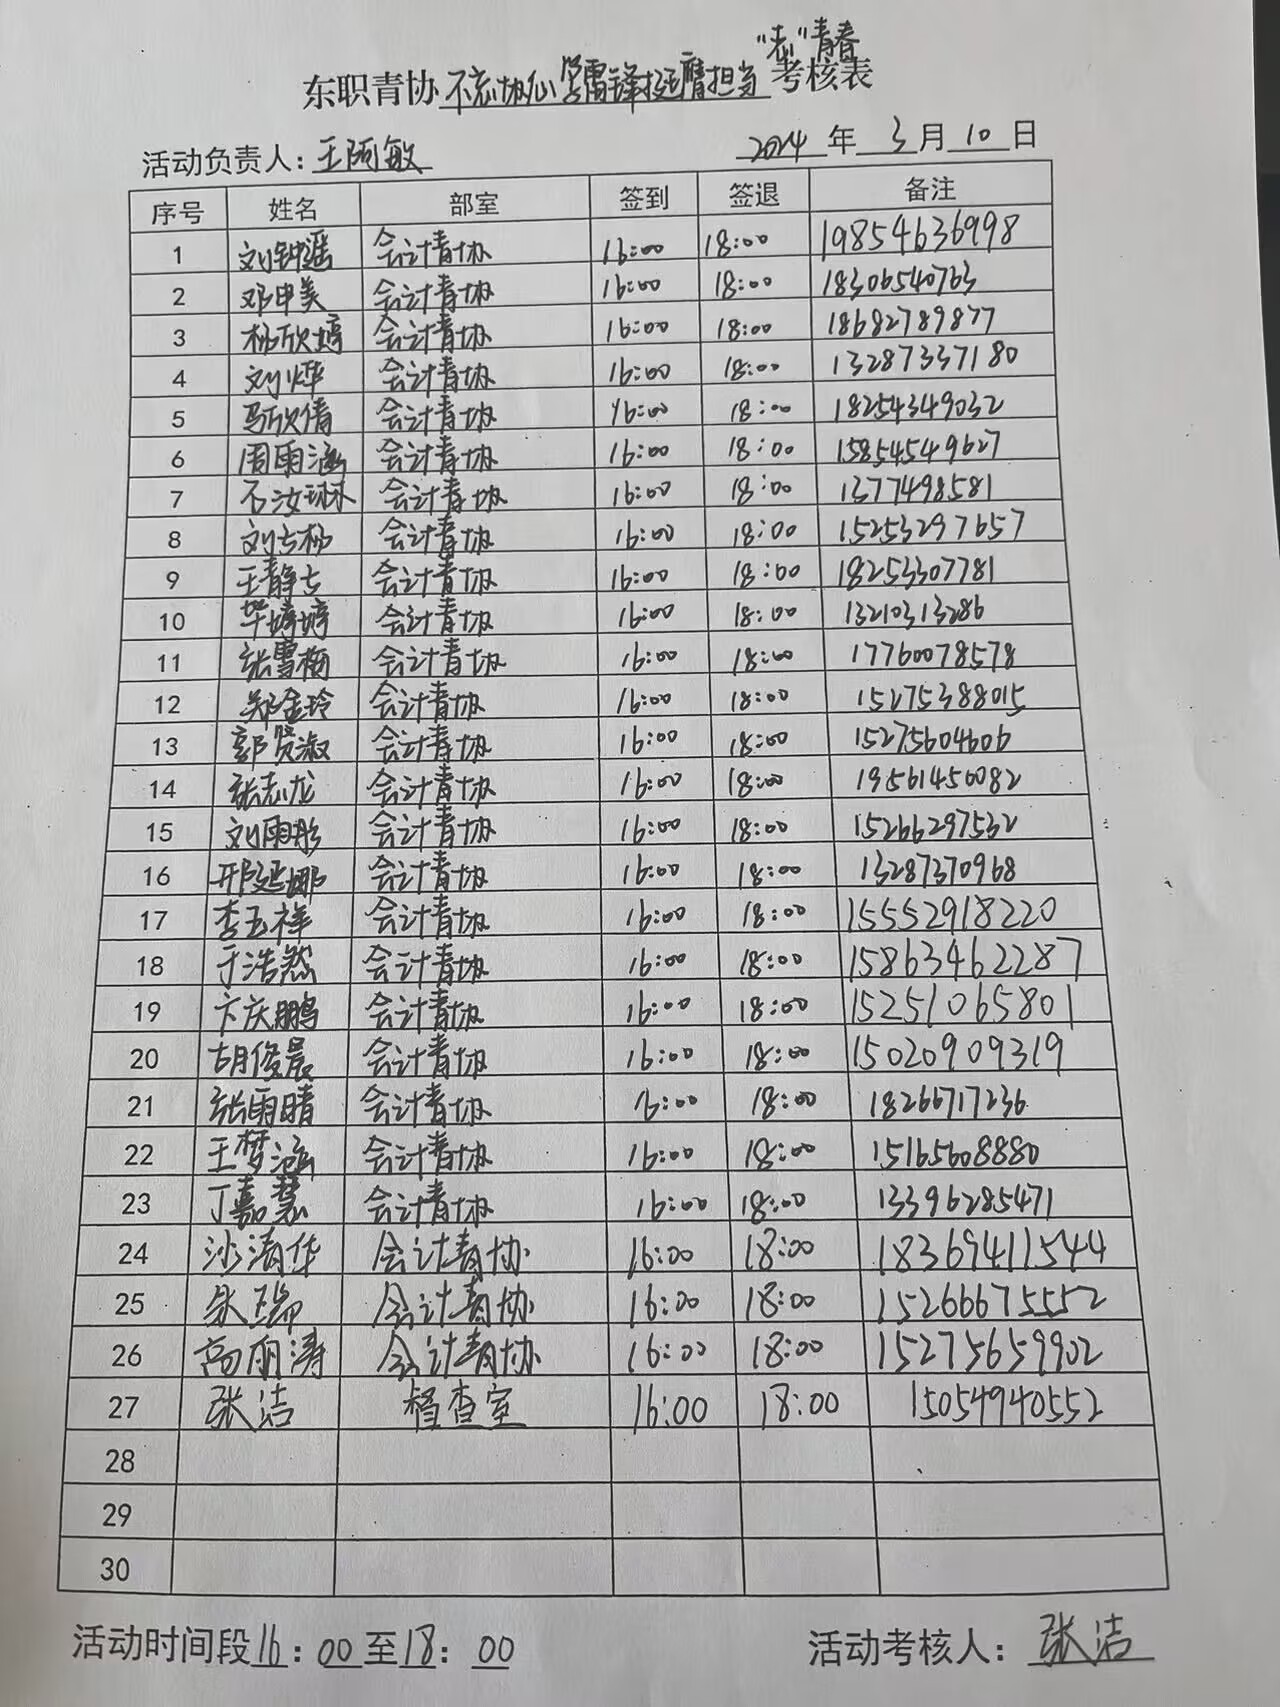 "志"青春
东职青协不忘协心 学雷锋挺膺担当 考核表
活动负责人：王阿敏 2024 年 3 月 10 日
序号 姓名 部室 签到 签退 备注
1 刘钟遥 会计青协 16:00 18:00 19854636998
2 邓申美 会计青协 16:00 18:00 18306540763
3 杨欣婷 会计青协 16:00 18:00 18682789877
4 刘烨 会计青协 16:00 18:00 13287337180
5 马欣倩 会计青协 16:00 18:00 18254349032
6 周雨涵 会计青协 16:00 18:00 15854549627
7 石汝琳 会计青协 16:00 18:00 1377498581
8 刘志杨 会计青协 16:00 18:00 15253297657
9 王静 会计青协 16:00 18:00 18253307781
10 毕婷婷 会计青协 16:00 18:00 13210313286
11 张雪梅 会计青协 16:00 18:00 17760078578
12 郑金玲 会计青协 16:00 18:00 15275388015
13 郭贤淑 会计青协 16:00 18:00 15275604606
14 张志龙 会计青协 16:00 18:00 19561450082
15 刘雨彤 会计青协 16:00 18:00 15266297532
16 邢延娜 会计青协 16:00 18:00 13287370968
17 李玉祥 会计青协 16:00 18:00 15552918220
18 于浩然 会计青协 16:00 18:00 15863462287
19 卞庆鹏 会计青协 16:00 18:00 15251065801
20 胡俊晨 会计青协 16:00 18:00 15020909319
21 张雨晴 会计青协 16:00 18:00 18266717236
22 王梦涵 会计青协 16:00 18:00 15165608880
23 丁嘉慧 会计青协 16:00 18:00 13396285471
24 沙清华 会计青协 16:00 18:00 18369411544
25 朱瑞 会计青协 16:00 18:00 15266675552
26 高丽涛 会计青协 16:00 18:00 15275659902
27 张洁 督查室 16:00 18:00 15054940552
28
29
30
活动时间段16：00至18：00 活动考核人：张洁